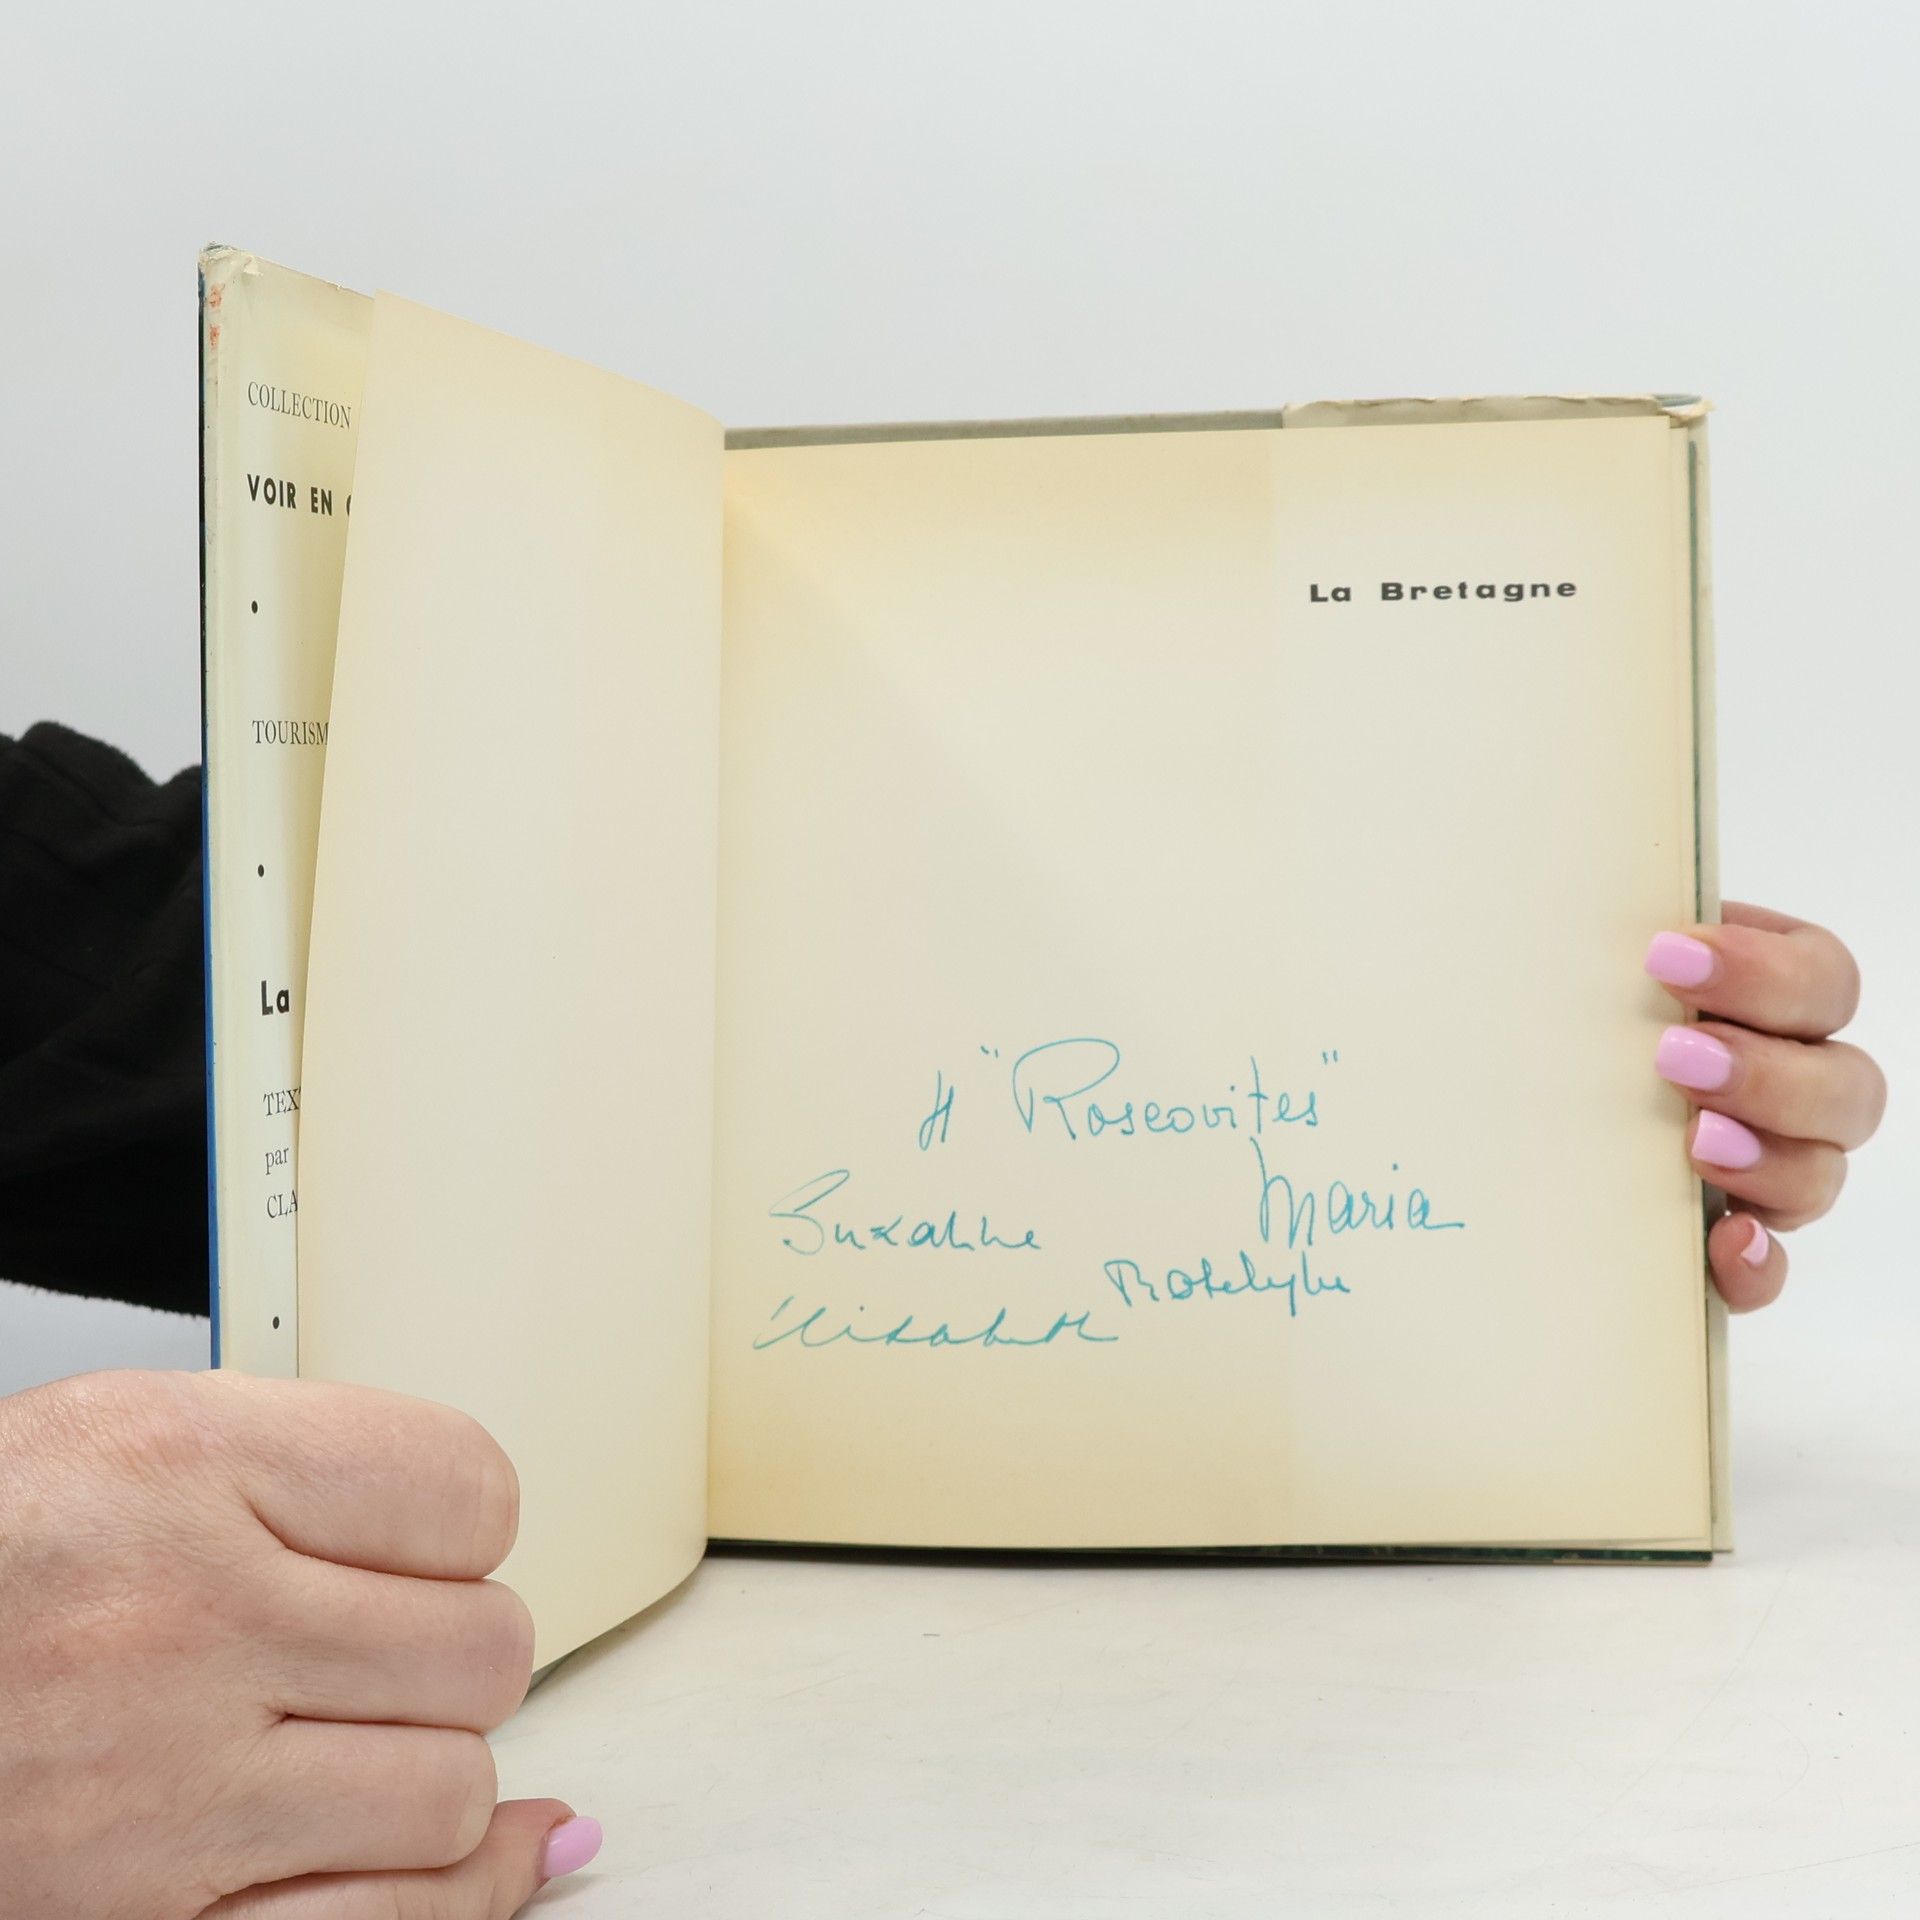 COLLECTION
VOIR EN
•
TOURISM
•
La
TEXT
par
CLA
•
La Bretagne
4 "Roscovites"
Suzanne
Maria
Roselyne
Elisabeth